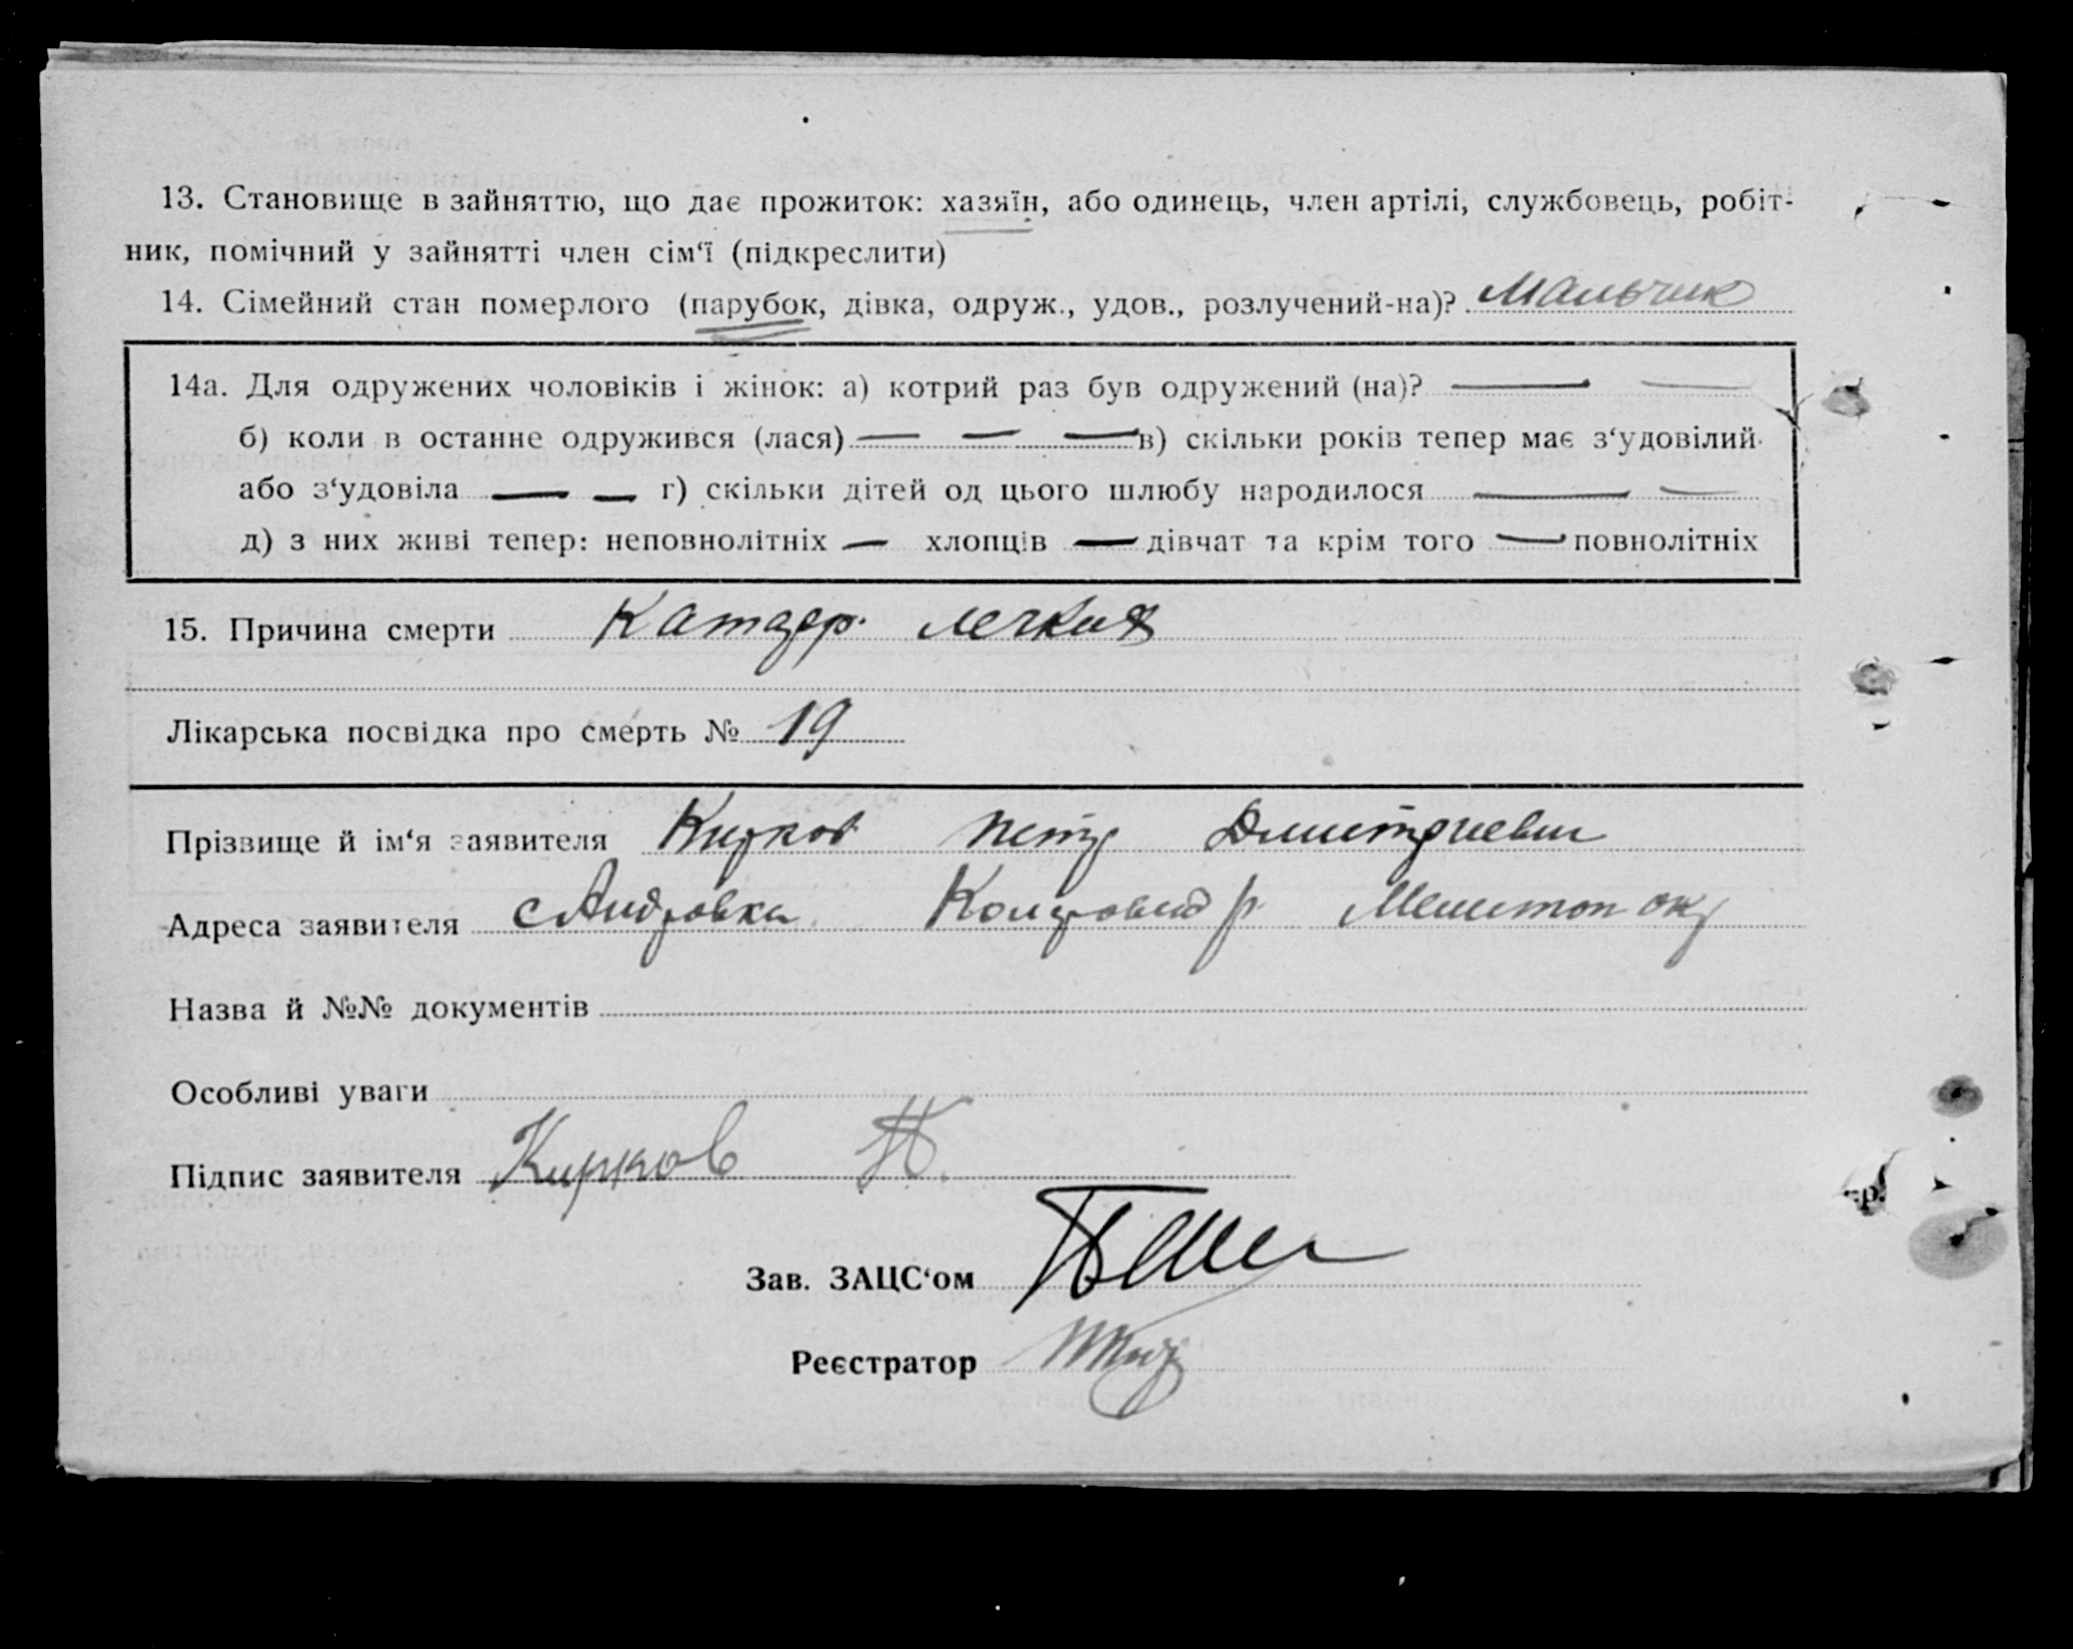 13. Становище в зайняттю, що дає прожиток: хазяїн, або одинець, член артілі, службовець, робіт-
ник, помічний у зайнятті член сім‘ї (підкреслити)
14. Сімейний стан померлого (парубок, дівка, одруж., удов., розлучений-на)? Мальчик
14а. Для одружених чоловіків і жінок: а) котрий раз був одружений (на)? — —
б) коли в останнє одружився (лася) — — — в) скільки років тепер має з‘удовілий
або з‘удовіла — — г) скільки дітей од цього шлюбу народилося — —
д) з них живі тепер: неповнолітніх — хлопців — дівчат та крім того — повнолітніх
15. Причина смерти Катар. легких
Лікарська посвідка про смерть № 19
Прізвище й ім‘я заявителя Кирков Петр Дмитриевич
Адреса заявителя с Андровка р. Мелитоп окр
Назва й №№ документів
Особливі уваги
Підпис заявителя Кирков П.
Зав. ЗАЦС‘ом
Реєстратор